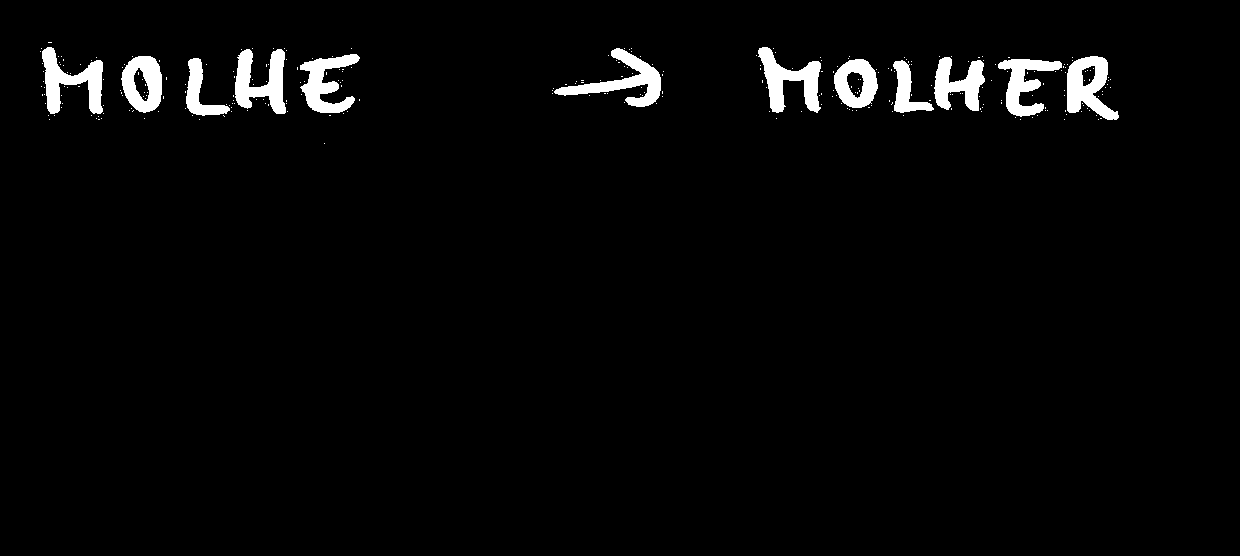 MOLHE → MOLHER